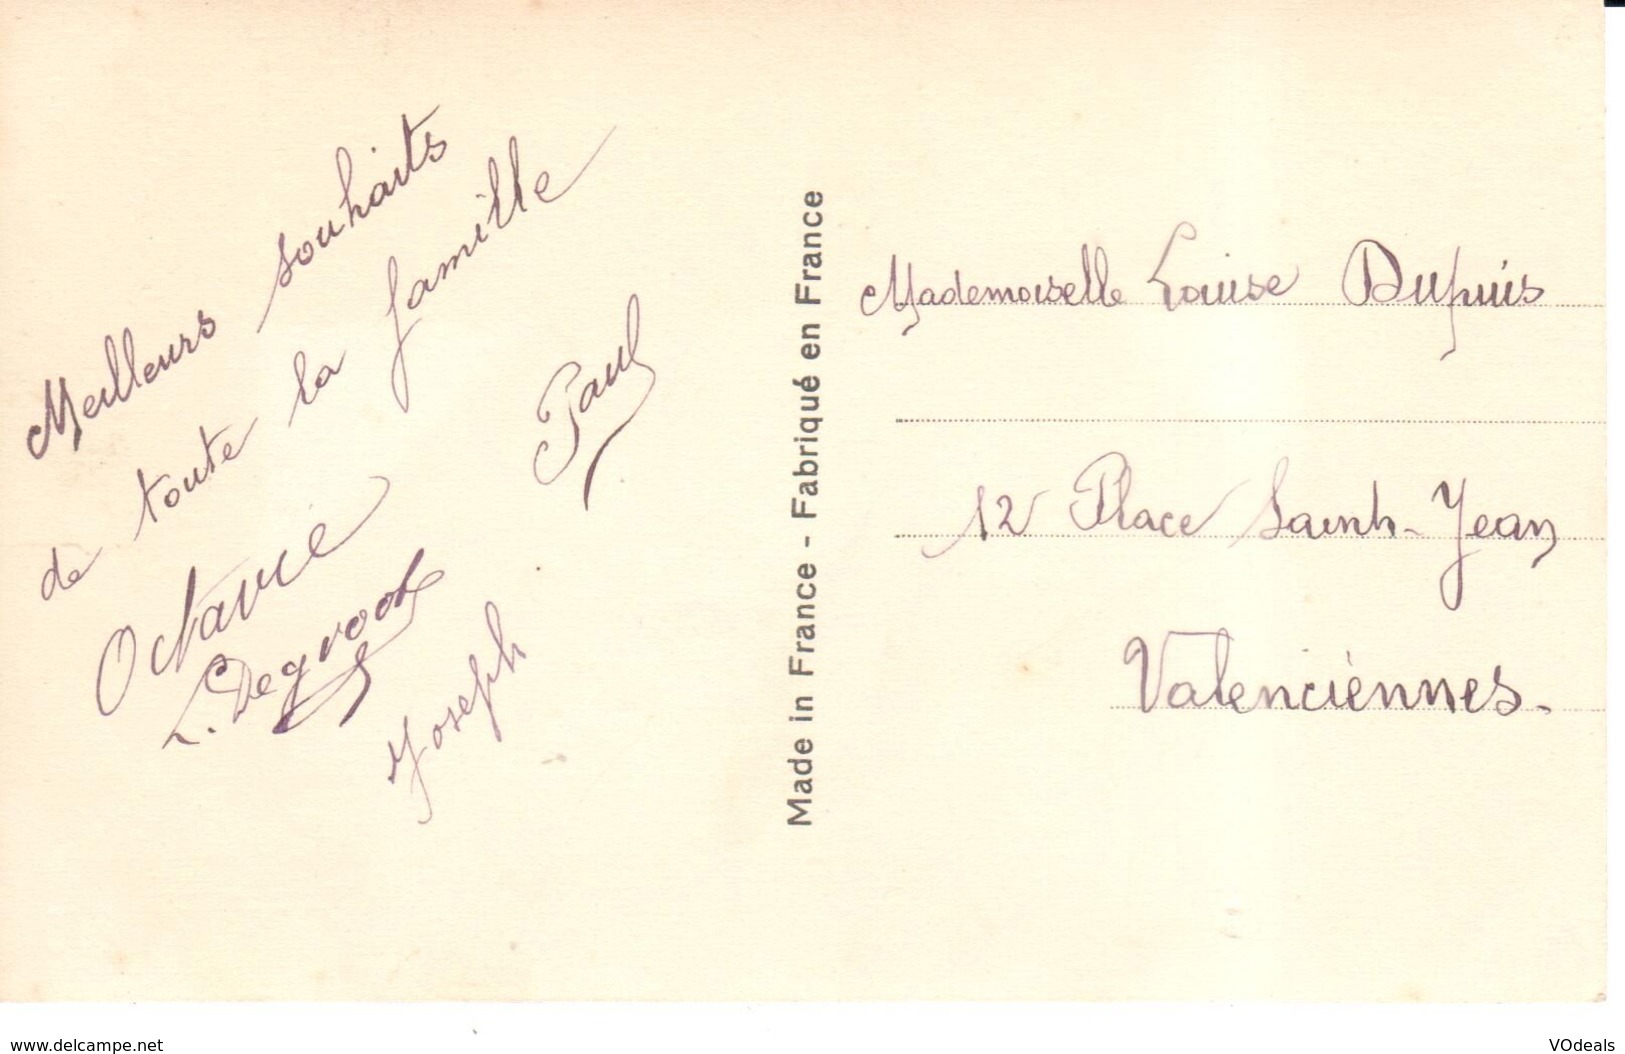 Meilleurs souhaits
de toute la famille
Octavie
Paul
L. Degroote
Joseph
Made in France - Fabriqué en France
Mademoiselle Louise Dupuis
12 Place Saint-Jean
Valenciennes.
www.delcampe.net
VOdeals